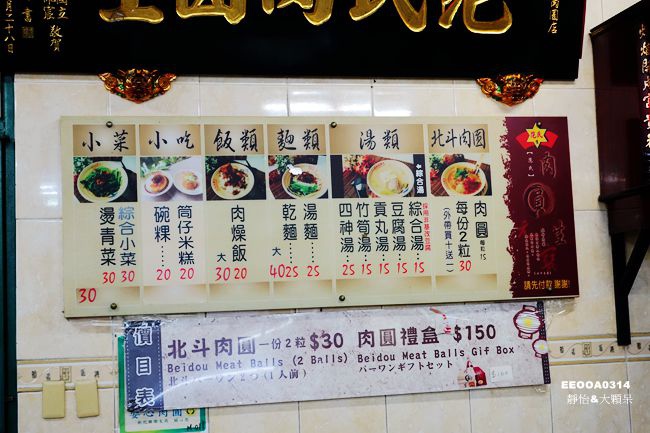 範氏肉圓生
小菜
綜合小菜 30
燙青菜 30
30
小吃
筒仔米糕 20
碗粿 20
飯類
肉燥飯
大 30 20
麵類
湯麵 25
乾麵 25
大 40
湯類
綜合湯
綜合湯 15
豆腐湯 15
採用非基改豆腐
貢丸湯 15
竹筍湯 15
四神湯 25
北斗肉圓
肉圓 每粒15
每份2粒 30
(外帶買十送一)
肉圓生
請先付款 謝謝!
價目表
北斗肉圓一份2粒 $30 肉圓禮盒 $150
Beidou Meat Balls (2 Balls) Beidou Meat Balls Gif Box
バーワンギフトセット
EEOOA0314
靜怡&大顆呆